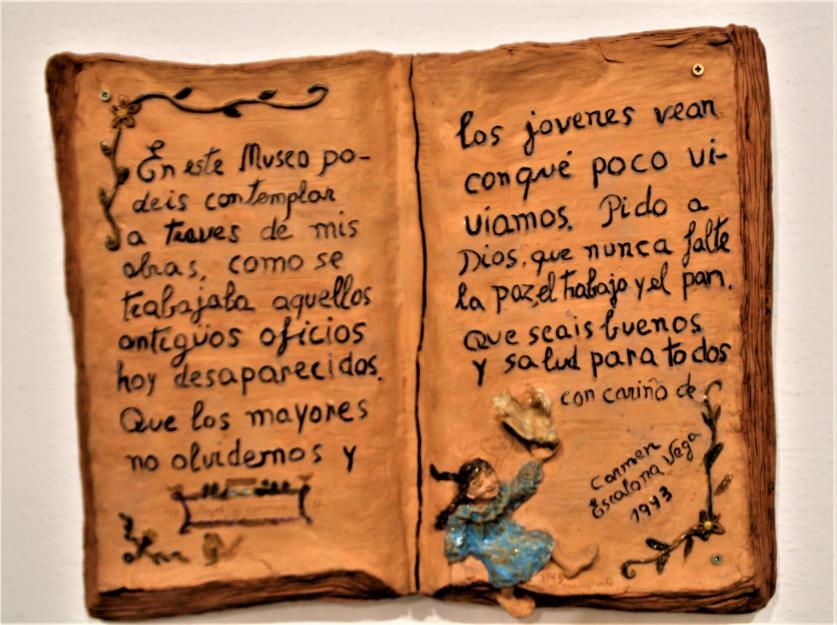 En este Museo po-
deis contemplar
a traves de mis
obras, como se
trabajaba aquellos
antiguos oficios
hoy desaparecidos.
Que los mayores
no olvidemos y
los jovenes vean
conqué poco vi-
viamos. Pido a
Dios, que nunca falte
la paz, el trabajo y el pan.
Que seais buenos
y salud para todos
con cariño de
Carmen
Escalona Vega
1993